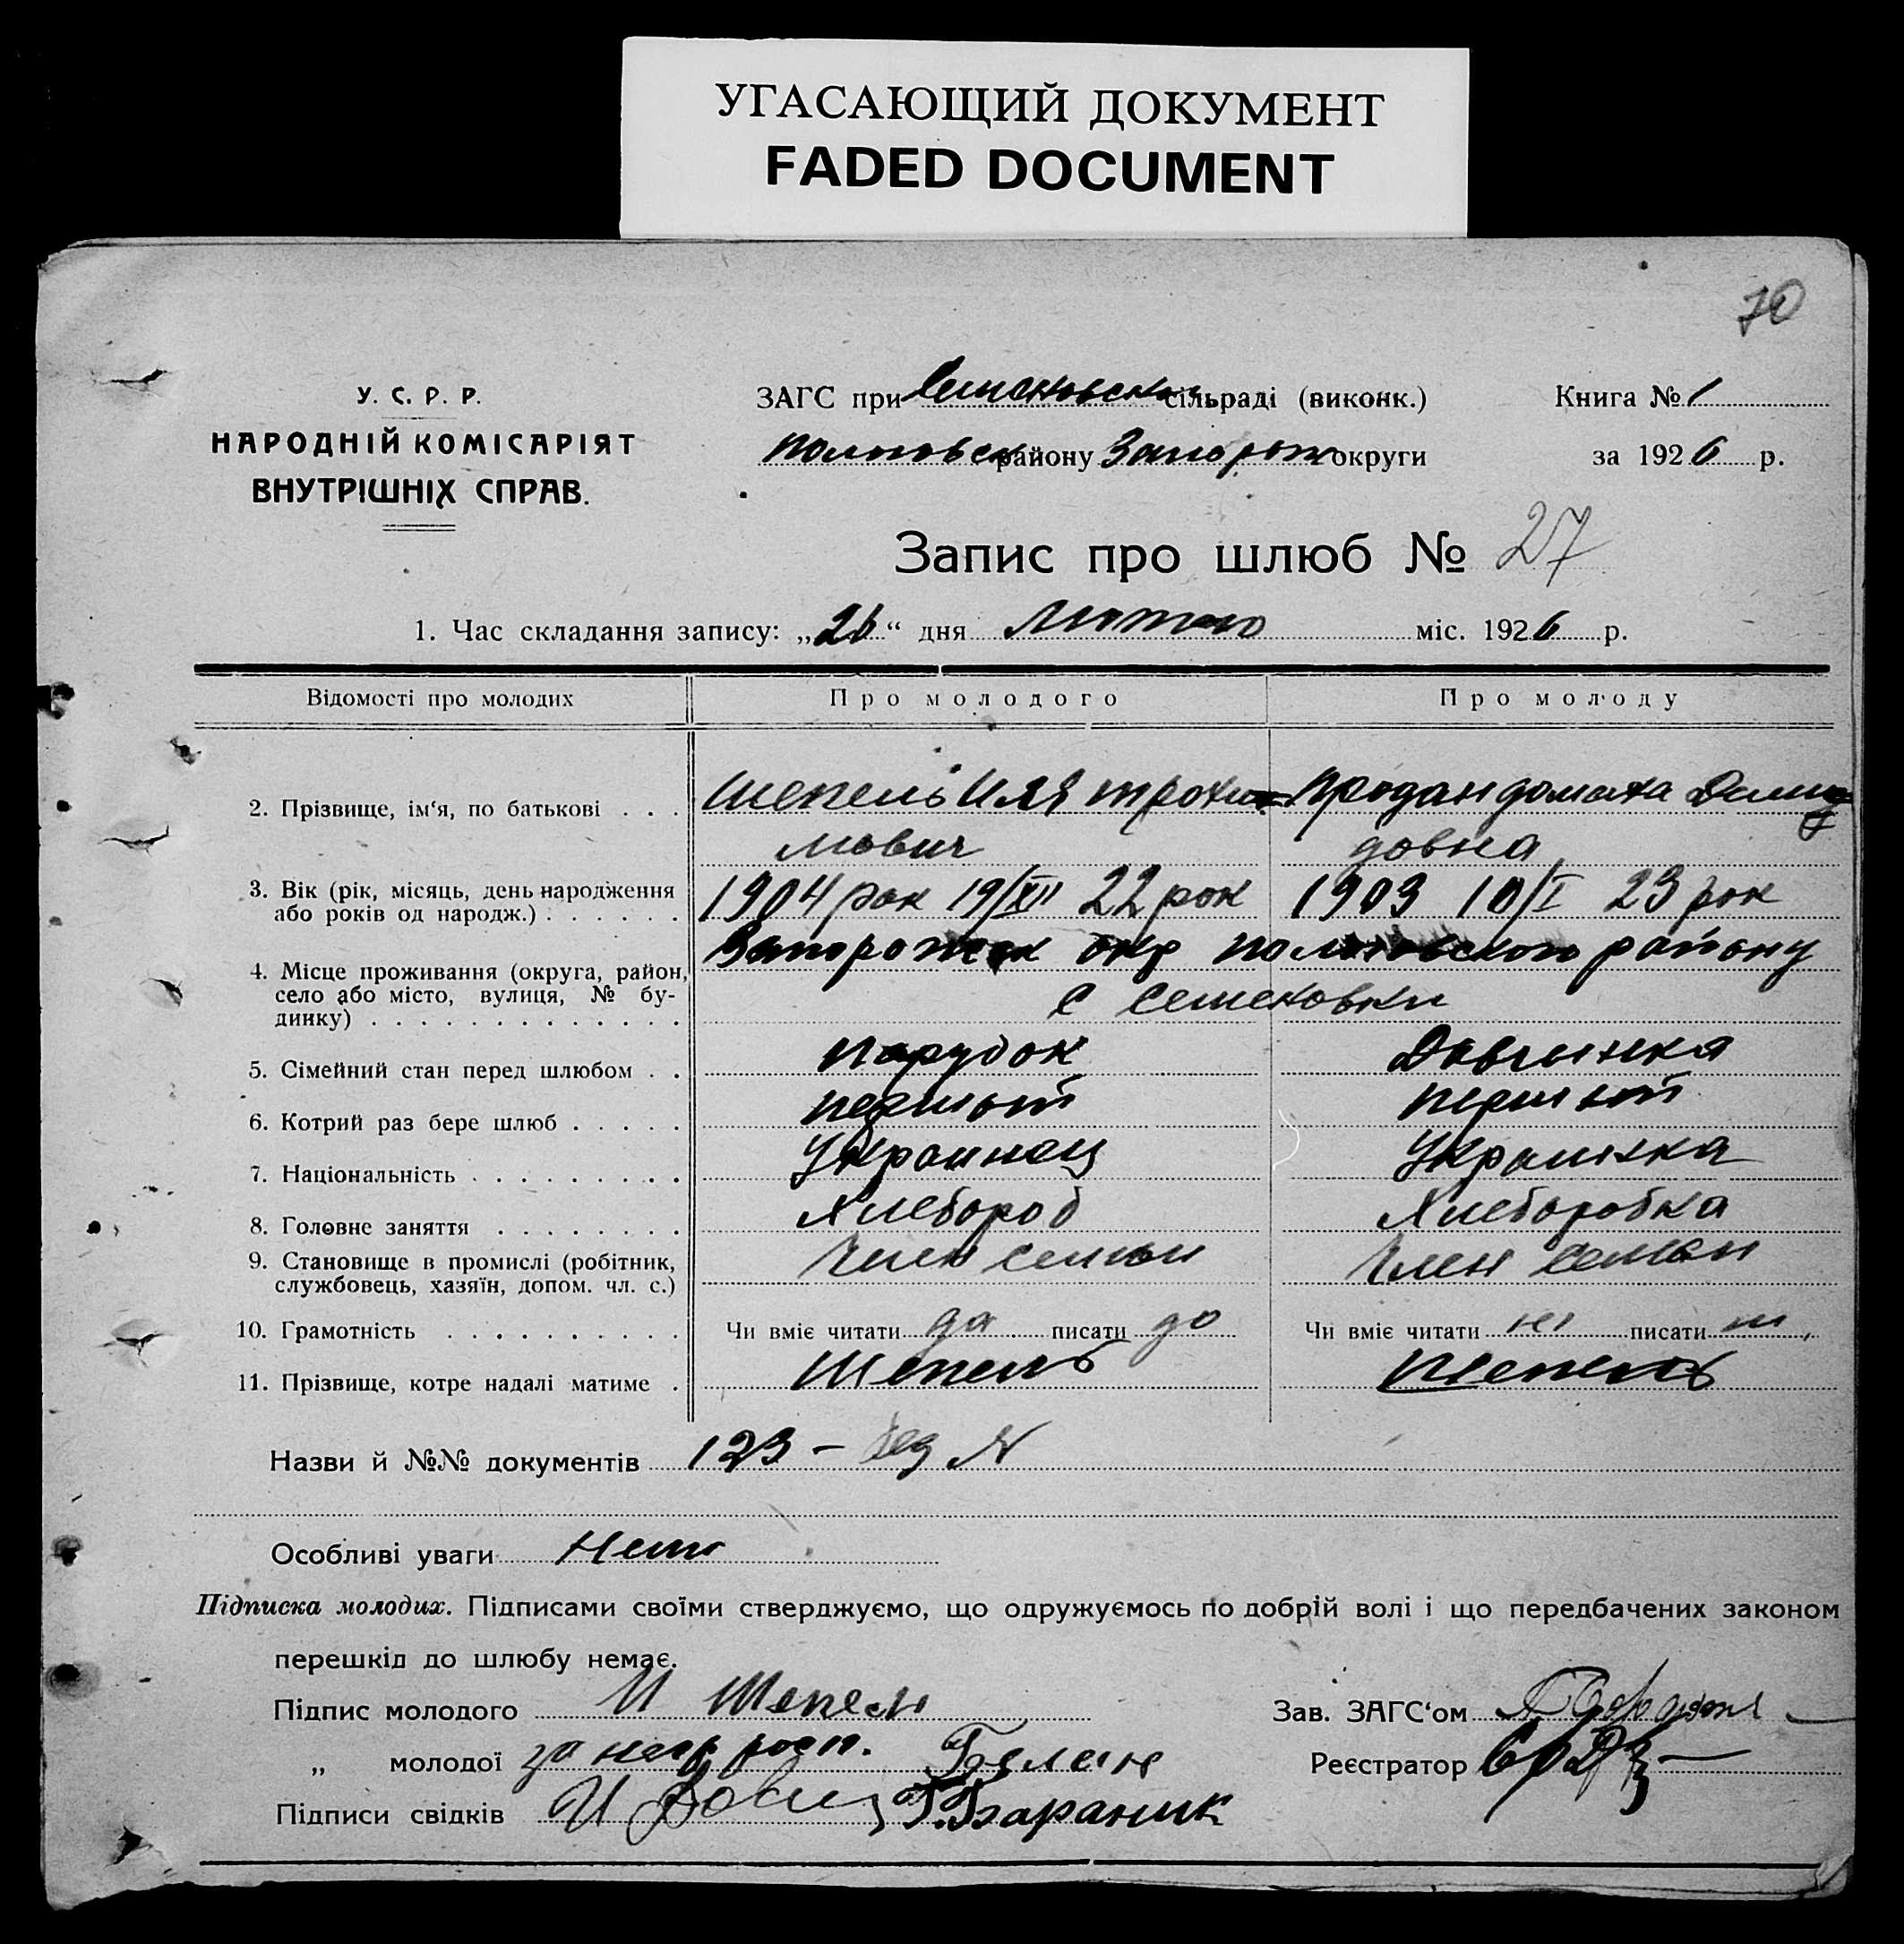 УГАСАЮЩИЙ ДОКУМЕНТ
FADED DOCUMENT
70
У. С. Р. Р.
НАРОДНІЙ КОМІСАРІЯТ
ВНУТРІШНІХ СПРАВ.
ЗАГС при Семеновски сільраді (виконк.)
Пологовск району Запорож округи
Книга № 1
за 1926 р.
Запис про шлюб № 27
1. Час складання запису: „26“ дня Лютого міс. 1926 р.
Відомості про молодих Про молодого Про молоду
2. Прізвище, ім‘я, по батькові . . . Шепель Иля Трохи- Продан Домаха Деми-
мович довна
3. Вік (рік, місяць, день народження
або років од народж.) . . . . . . 1904 рок 19/XII 22 рок 1903 10/I 23 рок
4. Місце проживання (округа, район, Запорожск окр Пологовского району
село або місто, вулиця, № бу- с Семеновки
динку) . . . . . . . . . . . . .
5. Сімейний стан перед шлюбом . . Парубок Дивчинка
6. Котрий раз бере шлюб . . . . . первый первый
7. Національність . . . . . . . . . Украинец Украинка
8. Головне заняття . . . . . . . . Хлебороб Хлеборобка
9. Становище в промислі (робітник,
службовець, хазяїн, допом. чл. с.) Член семьи Член семьи
10. Грамотність . . . . . . . . . . Чи вміє читати да писати да Чи вміє читати ні писати ні
11. Прізвище, котре надалі матиме . Шепель Шепель
Назви й №№ документів 123 – без №
Особливі уваги Нет
Підписка молодих. Підписами своїми стверджуємо, що одружуємось по добрій волі і що передбачених законом
перешкід до шлюбу немає.
Підпис молодого И Шепель
Зав. ЗАГС‘ом
„ молодої за негр росп.
Реєстратор
Підписи свідків И Г. Бараник